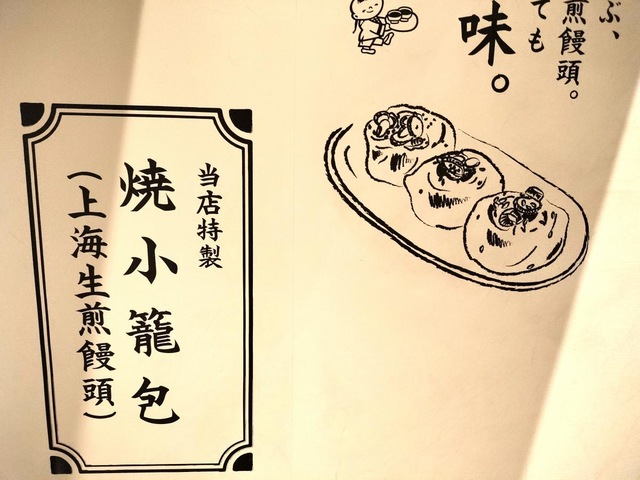 ぶ、
煎饅頭。
ても
味。
当店特製
焼小籠包
(上海生煎饅頭)